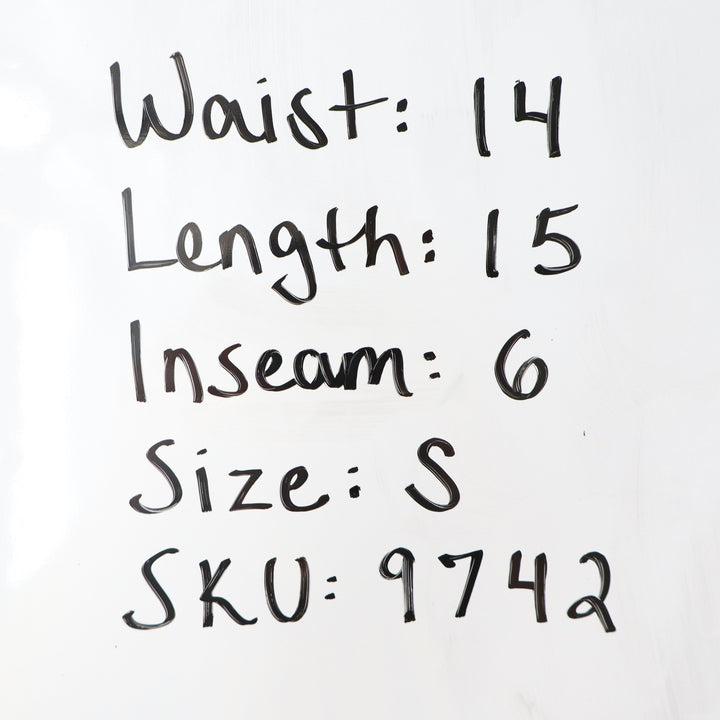 Waist: 14
Length: 15
Inseam: 6
Size: S
SKU: 9742